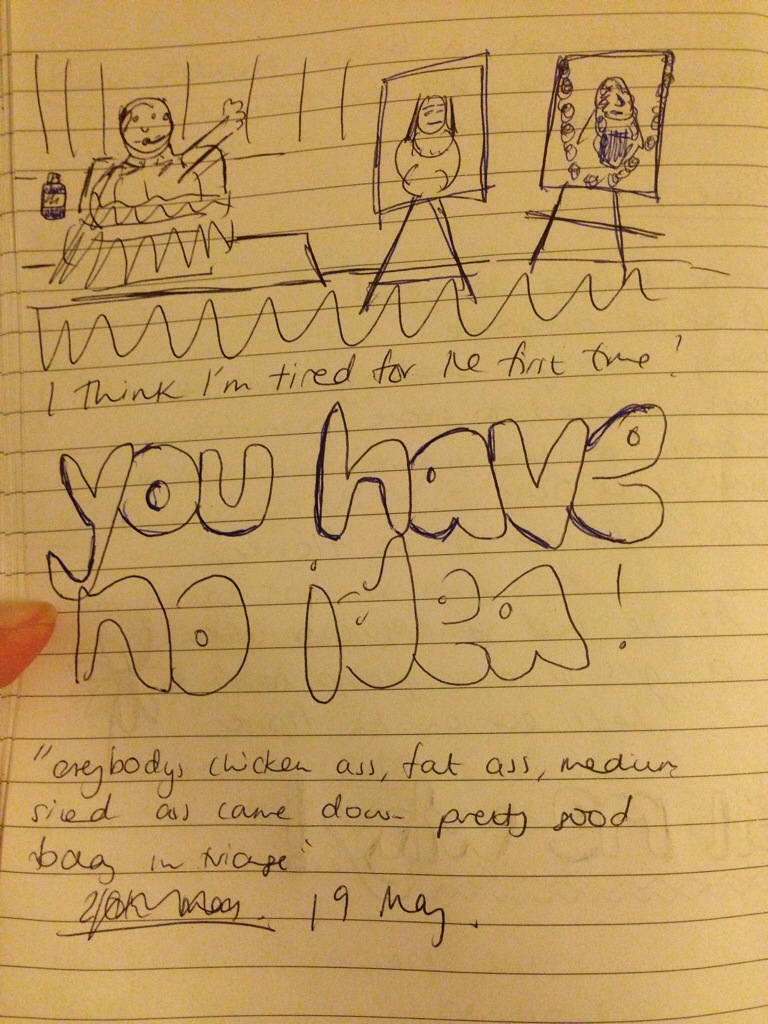 I think I'm tired for the first time!
you have
no idea!
"everybodys chicken ass, fat ass, medium
sized ass came down pretty good
in
19 May.